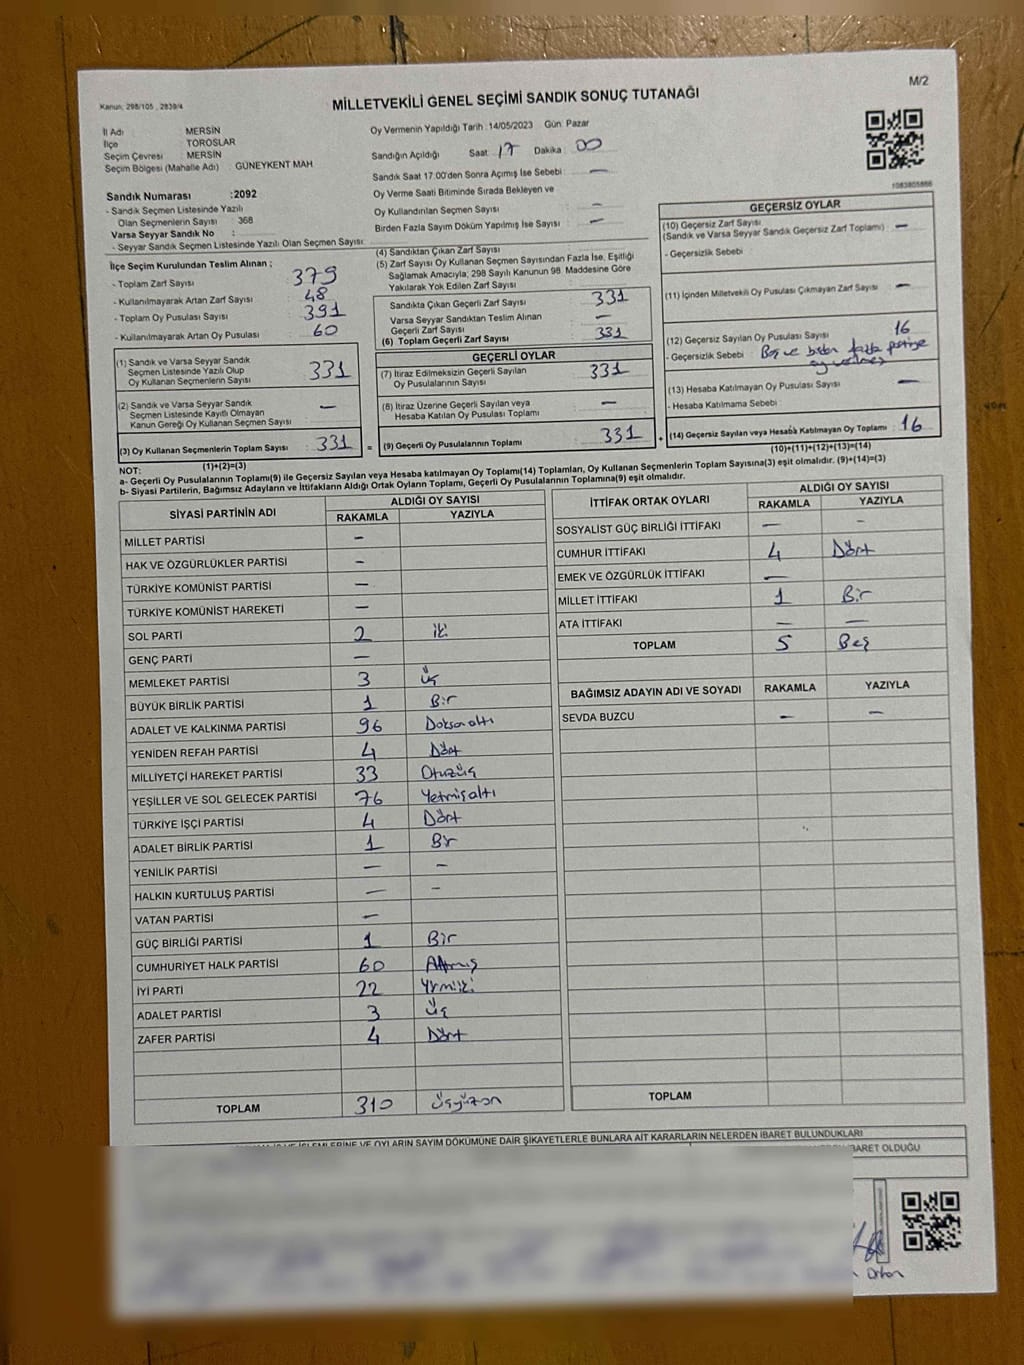 M/2
Kanun: 298/105 , 2839/4
MİLLETVEKİLİ GENEL SEÇİMİ SANDIK SONUÇ TUTANAĞI
İl Adı MERSİN
İlçe TOROSLAR
Seçim Çevresi MERSİN
Seçim Bölgesi (Mahalle Adı) GÜNEYKENT MAH
Sandık Numarası :2092
- Sandık Seçmen Listesinde Yazılı
Olan Seçmenlerin Sayısı 368
Varsa Seyyar Sandık No :
- Seyyar Sandık Seçmen Listesinde Yazılı Olan Seçmen Sayısı:
Oy Vermenin Yapıldığı Tarih :14/05/2023 Gün: Pazar
Sandığın Açıldığı Saat 17 Dakika : 00
Sandık Saat 17:00'den Sonra Açımış İse Sebebi : —
Oy Verme Saati Bitiminde Sırada Bekleyen ve
Oy Kullandırılan Seçmen Sayısı : —
Birden Fazla Sayım Döküm Yapılmış İse Sayısı : —
1083805866
İlçe Seçim Kurulundan Teslim Alınan ;
- Toplam Zarf Sayısı : 379
- Kullanılmayarak Artan Zarf Sayısı : 48
- Toplam Oy Pusulası Sayısı : 391
- Kullanılmayarak Artan Oy Pusulası : 60
(1) Sandık ve Varsa Seyyar Sandık
Seçmen Listesinde Yazılı Olup
Oy Kullanan Seçmenlerin Sayısı : 331
(2) Sandık ve Varsa Seyyar Sandık
Seçmen Listesinde Kayıtlı Olmayan
Kanun Gereği Oy Kullanan Seçmen Sayısı : —
(3) Oy Kullanan Seçmenlerin Toplam Sayısı : 331
(1)+(2)=(3)
(4) Sandıktan Çıkan Zarf Sayısı :
(5) Zarf Sayısı Oy Kullanan Seçmen Sayısından Fazla İse, Eşitliği
Sağlamak Amacıyla; 298 Sayılı Kanunun 98. Maddesine Göre
Yakılarak Yok Edilen Zarf Sayısı :
Sandıkta Çıkan Geçerli Zarf Sayısı : 331
Varsa Seyyar Sandıktan Teslim Alınan
Geçerli Zarf Sayısı : —
(6) Toplam Geçerli Zarf Sayısı : 331
GEÇERLİ OYLAR
(7) İtiraz Edilmeksizin Geçerli Sayılan
Oy Pusulalarının Sayısı : 331
(8) İtiraz Üzerine Geçerli Sayılan veya
Hesaba Katılan Oy Pusulası Toplamı : —
= (9) Geçerli Oy Pusulalarının Toplamı : 331
GEÇERSİZ OYLAR
(10) Geçersiz Zarf Sayısı
(Sandık ve Varsa Seyyar Sandık Geçersiz Zarf Toplamı) : —
- Geçersizlik Sebebi :
(11) İçinden Milletvekili Oy Pusulası Çıkmayan Zarf Sayısı : —
(12) Geçersiz Sayılan Oy Pusulası Sayısı : 16
- Geçersizlik Sebebi : Boş ve birden fazla partiye
(13) Hesaba Katılmayan Oy Pusulası Sayısı : —
- Hesaba Katılmama Sebebi :
+ (14) Geçersiz Sayılan veya Hesaba Katılmayan Oy Toplamı : 16
(10)+(11)+(12)+(13)=(14)
NOT:
a- Geçerli Oy Pusulalarının Toplamı(9) ile Geçersiz Sayılan veya Hesaba katılmayan Oy Toplamı(14) Toplamları, Oy Kullanan Seçmenlerin Toplam Sayısına(3) eşit olmalıdır. (9)+(14)=(3)
b- Siyasi Partilerin, Bağımsız Adayların ve İttifakların Aldığı Ortak Oyların Toplamı, Geçerli Oy Pusulalarının Toplamına(9) eşit olmalıdır.
SİYASİ PARTİNİN ADI ALDIĞI OY SAYISI
RAKAMLA YAZIYLA
MİLLET PARTİSİ —
HAK VE ÖZGÜRLÜKLER PARTİSİ —
TÜRKİYE KOMÜNİST PARTİSİ —
TÜRKİYE KOMÜNİST HAREKETİ —
SOL PARTİ 2 iki
GENÇ PARTİ —
MEMLEKET PARTİSİ 3 üç
BÜYÜK BİRLİK PARTİSİ 1 Bir
ADALET VE KALKINMA PARTİSİ 96 Doksanaltı
YENİDEN REFAH PARTİSİ 4 Dört
MİLLİYETÇİ HAREKET PARTİSİ 33 Otuzüç
YEŞİLLER VE SOL GELECEK PARTİSİ 76 Yetmişaltı
TÜRKİYE İŞÇİ PARTİSİ 4 Dört
ADALET BİRLİK PARTİSİ 1 Bir
YENİLİK PARTİSİ — —
HALKIN KURTULUŞ PARTİSİ — —
VATAN PARTİSİ —
GÜÇ BİRLİĞİ PARTİSİ 1 Bir
CUMHURİYET HALK PARTİSİ 60 Altmış
İYİ PARTİ 22 Yirmiiki
ADALET PARTİSİ 3 üç
ZAFER PARTİSİ 4 Dört
TOPLAM 310 üçyüzon
İTTİFAK ORTAK OYLARI ALDIĞI OY SAYISI
RAKAMLA YAZIYLA
SOSYALİST GÜÇ BİRLİĞİ İTTİFAKI — —
CUMHUR İTTİFAKI 4 Dört
EMEK VE ÖZGÜRLÜK İTTİFAKI —
MİLLET İTTİFAKI 1 Bir
ATA İTTİFAKI — —
TOPLAM 5 Beş
BAĞIMSIZ ADAYIN ADI VE SOYADI RAKAMLA YAZIYLA
SEVDA BUZCU — —
TOPLAM
VE OYLARIN SAYIM DÖKÜMÜNE DAİR ŞİKAYETLERLE BUNLARA AİT KARARLARIN NELERDEN İBARET BULUNDUKLARI
BARET OLDUĞU